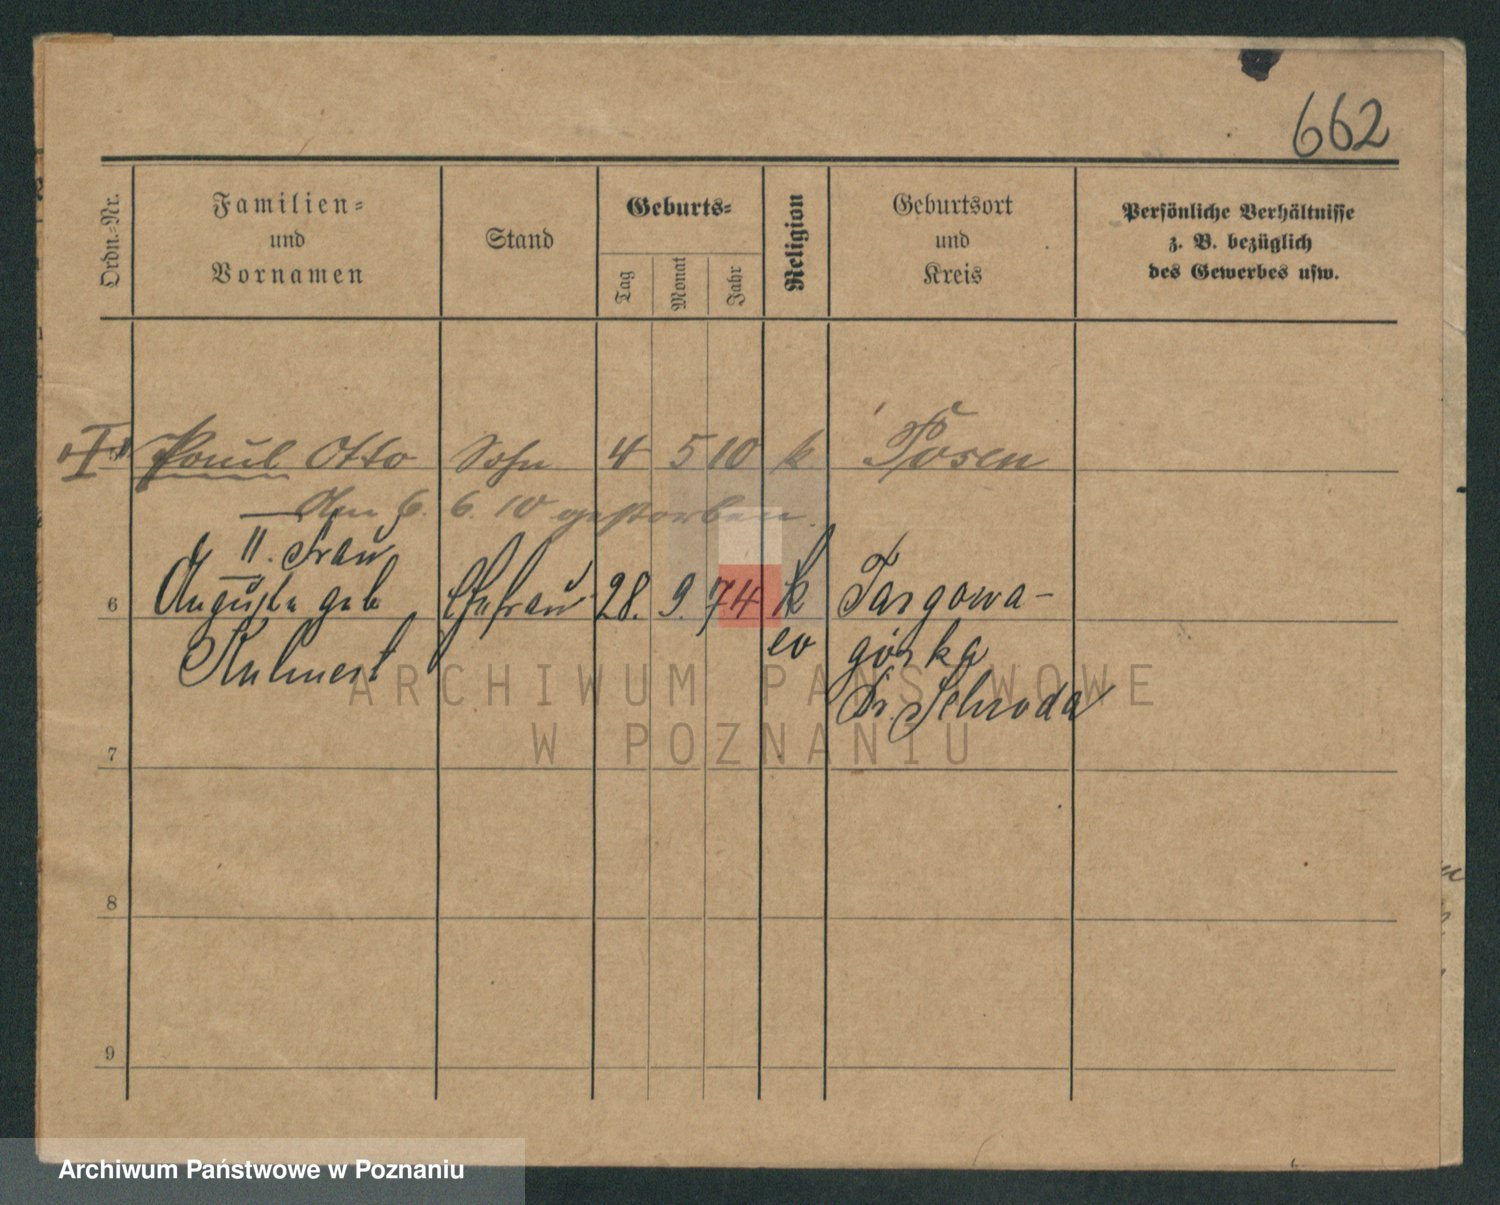 662
Ordn.-Nr.
Familien-
und
Vornamen
Stand
Geburts-
Tag
Monat
Jahr
Religion
Geburtsort
und
Kreis
Persönliche Verhältnisse
z. B. bezüglich
des Gewerbes usw.
5 Paul Otto Sohn 4 5 10 k Posen
Am 6. 6. 10 gestorben.
II. Frau
6 Auguste geb Ehefrau 28. 9. 74 k Targowa-
ev górka
Kr. Schroda
7
8
9
ARCHIWUM PAŃSTWOWE
W POZNANIU
Archiwum Państwowe w Poznaniu